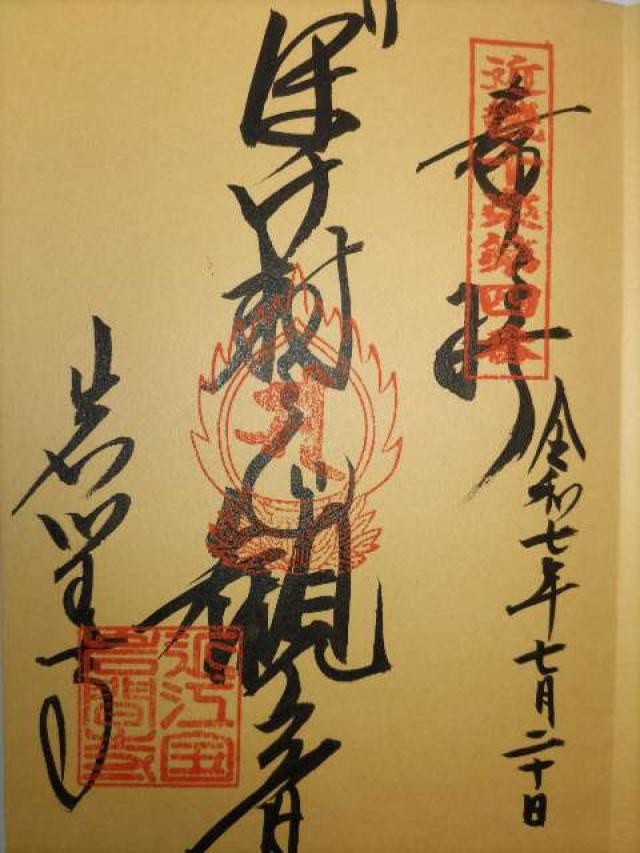 奉拝
近畿十楽第四番
令和七年七月二十日
ぼけ封じ観音
岩間寺
近江国
岩間寺